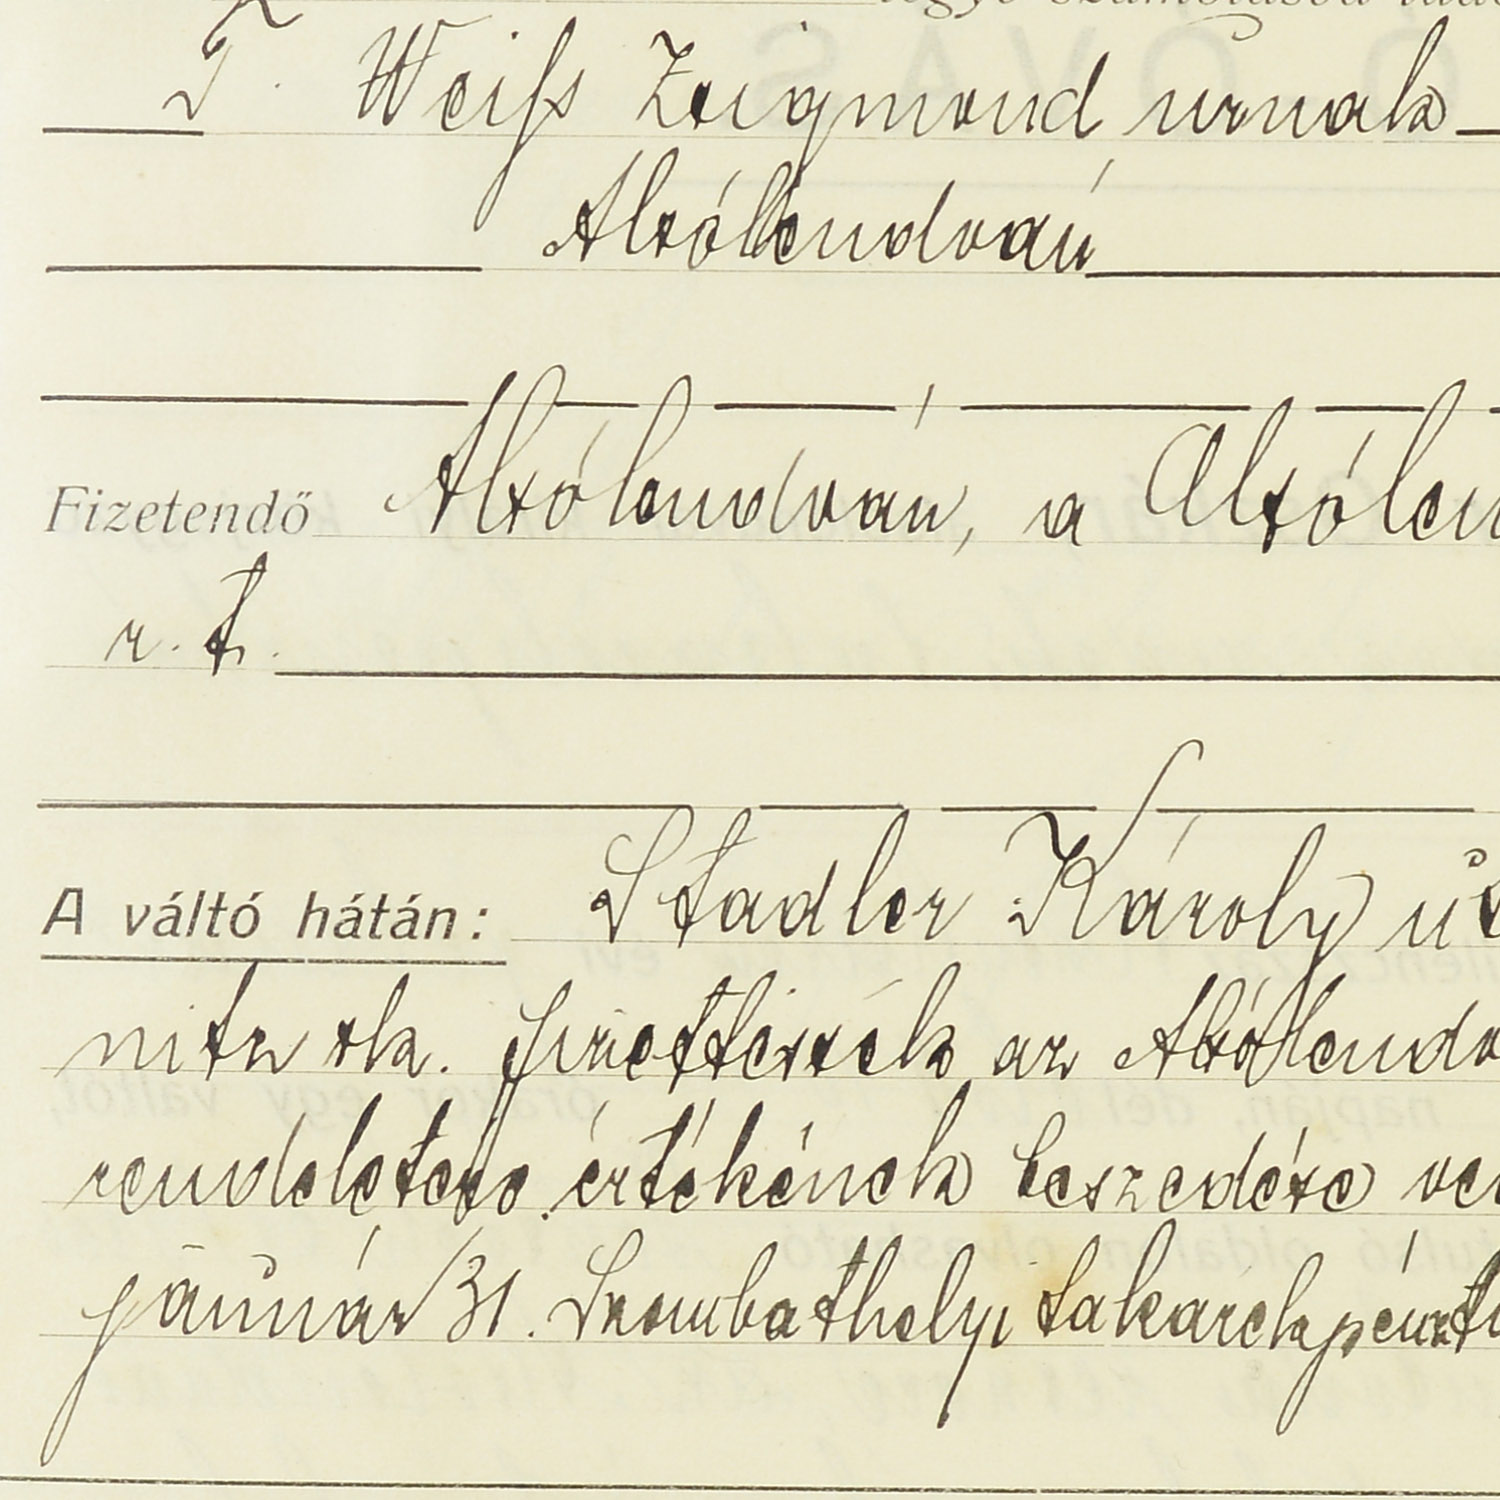 T. Weiss Zsigmond urnak
Alsólendván
Fizetendő Alsólendván, a Alsólen
r. t.
A váltó hátán: Stadler Károly
nitz sk. fizettessék az Alsólendv
rendeletére értékének beszedése
január 31. Szombathelyi takarékpénzt